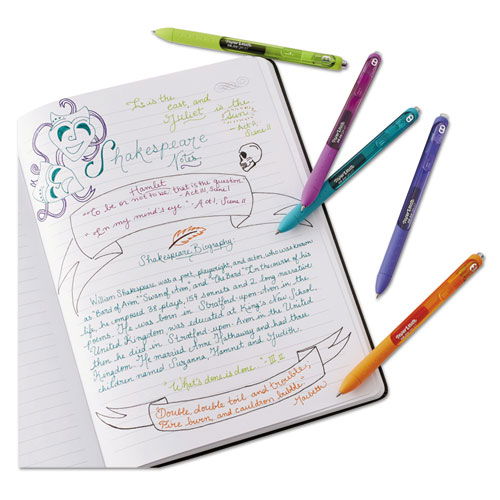 It is the
east, and
Juliet is the
Sun.
- Act II,
Scene II
Shakespeare
Notes
Hamlet
"To be or not to be, that is the question.
- Act III, Scene I
"In my mind's eye." - Act I, Scene II
Shakespeare Biography:
William Shakespeare was a poet, playwright, and actor, who was known
as "Bard of Avon," "Swan of Avon," and "The Bard." In the course of his
life, he composed 38 plays, 154 sonnets and 2 long narrative
poems. He was born in Stratford-upon-Avon in the
United Kingdom, was educated at King's New School,
then he died in Stratford-upon-Avon in the United
Kingdom. He married Anne Hathaway and had three
children named Suzanna, Hamnet and Judith.
"What's done is done." - III. II
"Double, double toil and trouble;
Fire burn, and cauldron bubble."
Macbeth
Paper Mate
Paper Mate
Paper Mate
Paper Mate
Paper Mate